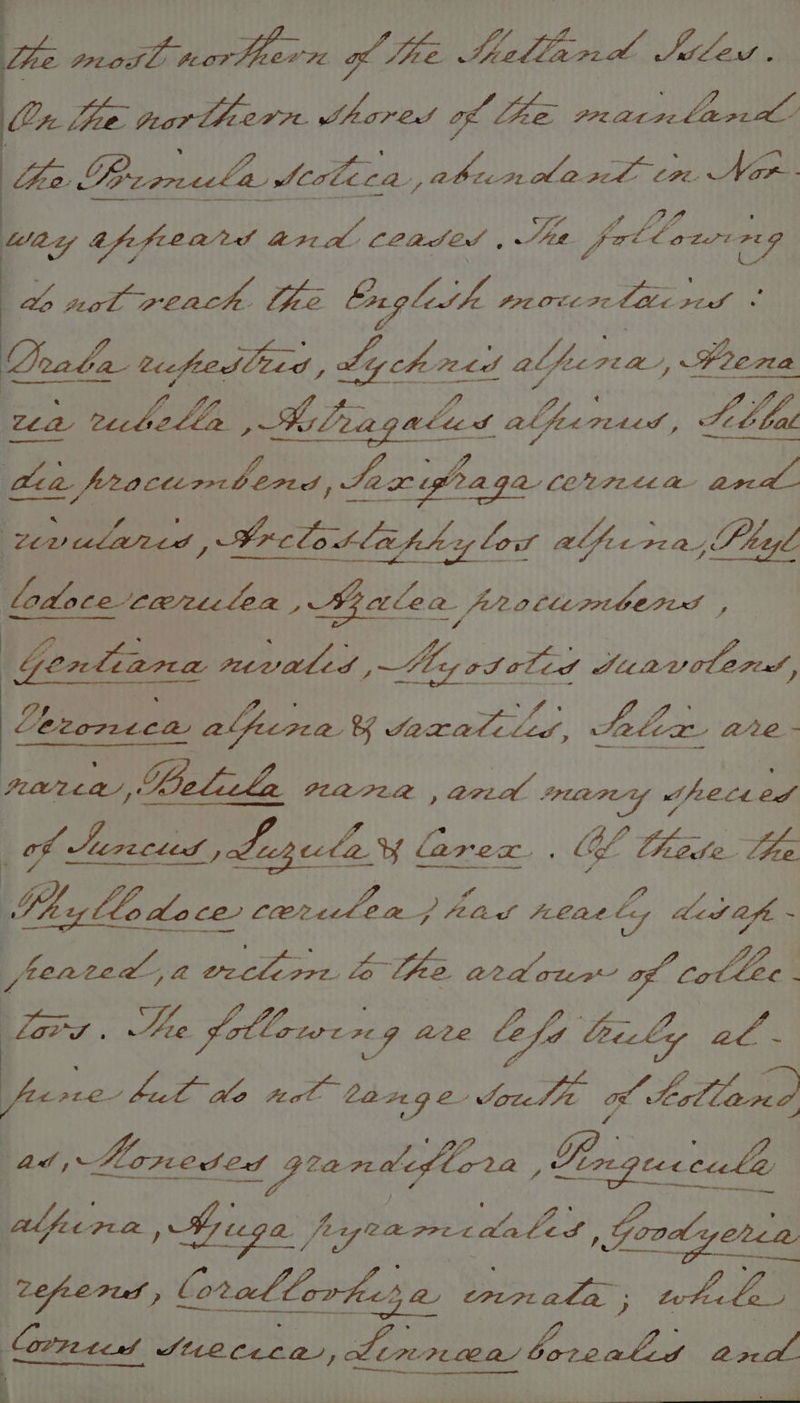 the most northern of the Shetland Isles.
On the northern shores of the mainland
the Primula Scotica, abundant in Nor-
way appears and ceases. The following
do not reach the English mountains :
Draba rupestris, Lychnis alpina, Arena
ria rubella, Astragalus alpinus, Sibbal
dia procumbens, Saxifraga cernua and
rivularis, Arctostaphylos alpina, Phyl
lodoce cærulea, Azalea procumbens,
Gentiana nivalis, Myosotis suavolens,
Veronica alpina & saxatilis, Salix are-
naria, Betula nana, and many species
of Juncus, Luzula & Carex. Of these the
Phyllodoce cærulea; has nearly disap-
peared, a victim to the ardour of collec-
tors. The following are less truly al-
pine but do not range south of Scotland
as, Moneses grandiflora, Pinguicula
alpina, Ajuga pyramidalis, Goodyeria
repens, Corallorhiza innata; while
Cornus suecica, Linnæa borealis and